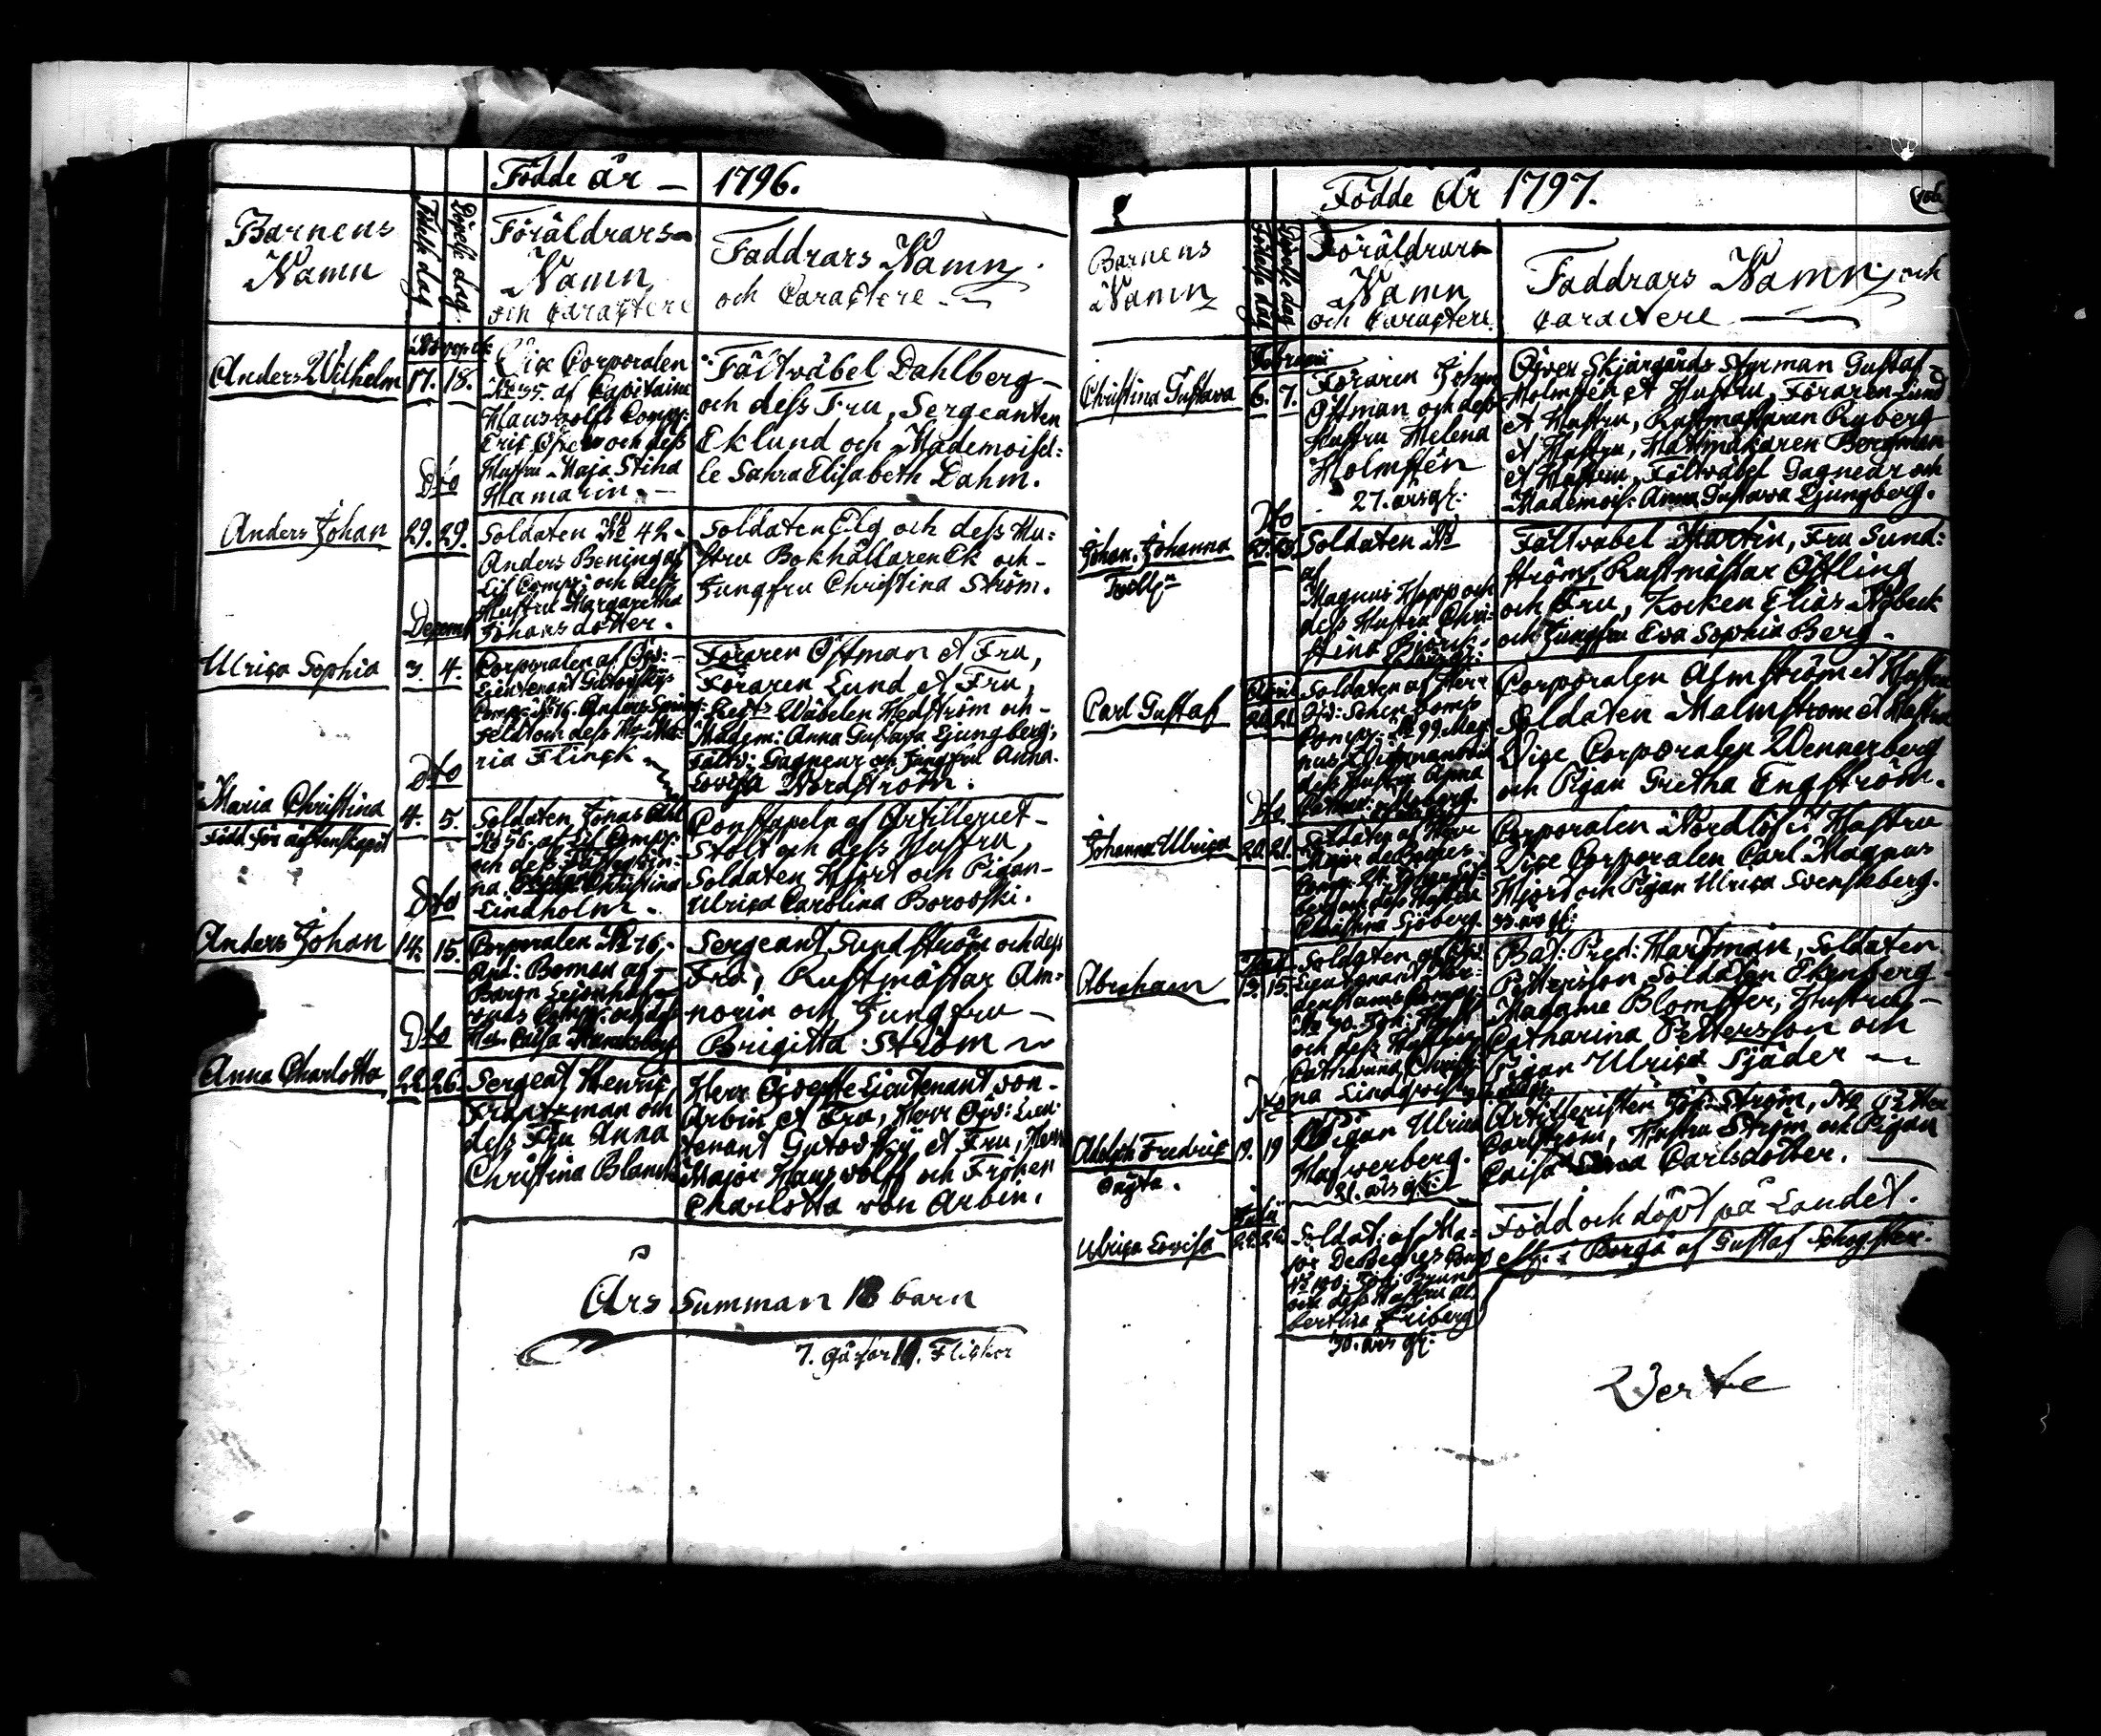 Födde år – 1796.
Barnens
Namn
Födelse dag
Döpelse dag.
Föräldrars
Namn
och Caractere
Faddrars Namn
och Caractere
Novemb:
Anders Wilhelm
17. 18.
Vice Corporalen
No 35. af Capitaine
Hauswolffs Comp:
Eric och dess
Hustru Maja Stina
Hamarin.
Fältväbel Dahlberg –
och dess Fru, Sergeanten
Eklund och Mademoisel:
le Sahra Elisabeth Dahm.
Dto
Anders Johan
29. 29.
Soldaten No 42.
Anders Bening af
Lif Comp: och dess
Hustru Margaretha
Johansdotter.
Soldaten Elg och dess Hu:
stru Bokhållaren Ek och –
Jungfru Christina Ström.
Decemb
Ulrica Sophia
3. 4.
Corporalen af Öfv: –
Lieutenant Gutofskys
Comp: No 76. Anders Spring
feldt och dess H: Ma:
ria Flinck
Föraren Öftman et Fru,
Föraren Lund et Fru,
Regts Wäbelen Hedström och –
Madem: Anna Gustava Ljungberg,
Fältv: Gagneur och Jungfru Anna
Lovisa Nordström.
Dto
Maria Christina
Född för äktenskapet
4. 5.
Soldaten Jonas Ahl
No 56. af Lif Comp:
och dess
na Christina
Lindholm.
Constapeln af Artilleriet –
Stolt och dess Hustru,
Soldaten Hjort och Pigan –
Ulrica Carolina Borovski.
Dto
Anders Johan
14. 15.
Corporalen No 76.
And: Boman af
Baron Lejonhuf
vuds Comp: och dess
H: Caisa
Sergeant Sundström och dess
Fru, Rustmästar Am:
norin och Jungfru –
Brigitta Ström
Dto
Anna Charlotta
22. 26.
Sergeat Henric
Frantzman och
dess Fru Anna
Christina Blanck
Herr Öfverste Lieutenant von –
Arbin et Fru, Herr Öfv: Lieu:
tenant Gutovsky et Fru, Herr
Major Hauswolff och Fröken
Charlotta von Arbin.
Års Summan 18 barn
7. Gåssar 11. Flickor
Födde År 1797.
Barnens
Namn
Födelse dag
Döpelse dag
Föräldrars
Namn
och Caractere
Faddrars Namn och
Caractere
Februari
Christina Gustava
6. 7.
Föraren Johan
Öftman och dess
Hustru Helena
Holmstén
27. års gl:
Öfver Skjärgårds Styrman Gustaf
Holmstén et Hustru, Föraren Lund
et Hustru, Rustmästaren Ryberg
et Hustru, Hattmakaren Bergman
et Hustru, Fältväbel Gagneur och
Mademois: Anna Gustava Ljungberg.
Dto
Johan. Johanna
Tvillr
Soldaten No
af
Magnus Hopp och
dess Hustru Chri:
stina Björk.
Fältvabel Martin, Fru Sund:
ström, Rustmästar Östling
och Fru, Kocken Elias Nobeck
och Jungfru Eva Sophia Berg.
April
Carl Gustaf
Soldaten af Herr
Comp: No 99. Mag:
nus
dess Hustru Anna
Corporalen Almström et Hustru
Soldaten Malmstrom et Hustru
Vice Corporalen Wennerberg
och Pigan Gretha Engström.
Dto
Johanna Ulrica
20. 21.
Soldaten af Herr
Major
Comp: 24. Johan
berg och dess Hustru
Christina Sjöberg.
33. års gl:
Corporalen Nordlöf et Hustru
Vice Corporalen Carl Magnus
Hjort och Pigan Ulrica Svenskberg.
Abraham
13. 15.
Soldaten af Öfv:
Lieutenant
Comp:
No 90. Joh:
och dess Hustru
Catharina Christi:
na Lindqvist
Bat: Pred: Hartman, Soldaten
Pettersson, Soldaten Ekenberg –
Madame Blomster, Hustru –
Catharina Pettersson och
Pigan Ulrica Sjöder
Dto
Adolph Fredric
Oägta.
19. 19
Pigan Ulrica
Hagverberg.
21. års gl:
Artilleristen Joh: Ström, No Petter
Carlström, Hustru Ström och Pigan
Caisa Carlsdotter.
Ulrica Lovisa
Soldat: af Ma:
jor Comp
No 100. Joh: Brunt
och dess Hustru Al:
bertina Friberg
30. års gl:
Född och döpt på Landet.
i Borgå af Gustaf
Verte